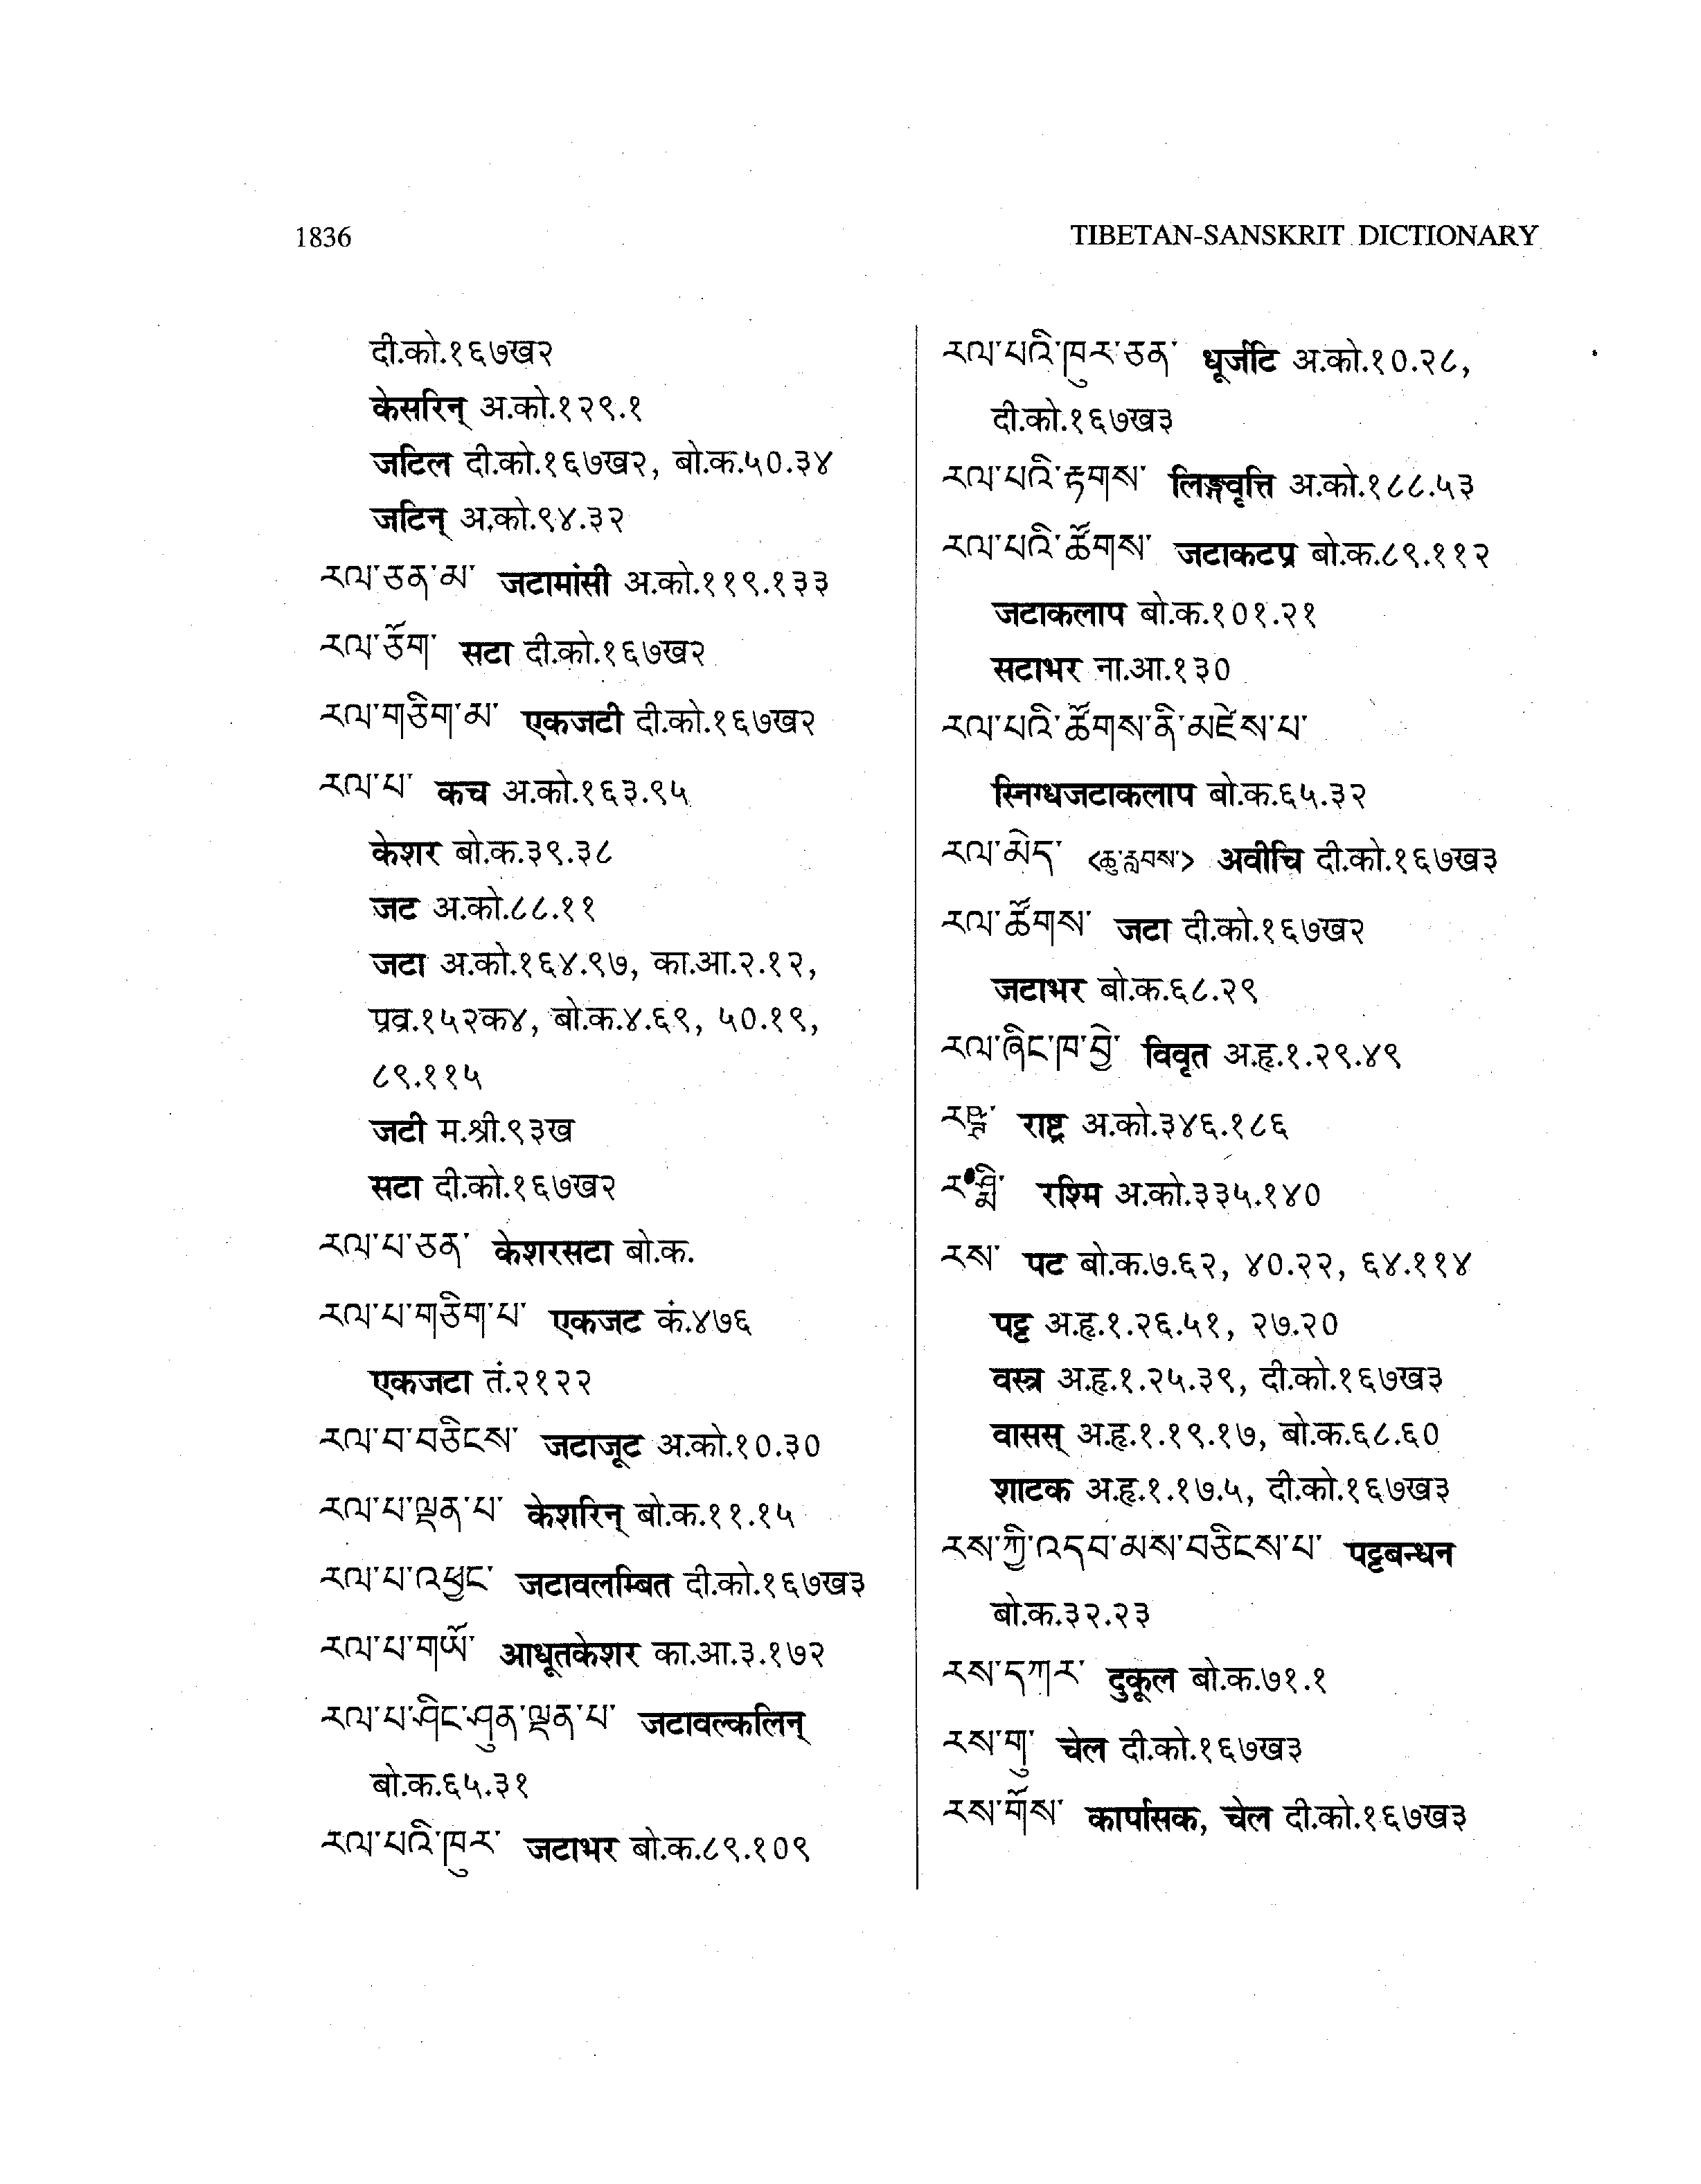 1836
TIBETAN-SANSKRIT DICTIONARY
दी.को.१६७ख२
केसरिन् अ.को.१२९.१
जटिल दी.को.१६७ख२, बो.क.५०.३४
जटिन् अ.को.९४.३२
རལ་ཅན་མ་ जटामांसी अ.को.११९.१३३
རལ་ཅོག་ सटा दी.को.१६७ख२
རལ་གཅིག་མ་ एकजटी दी.को.१६७ख२
རལ་པ་ कच अ.को.१६३.९५
केशर बो.क.३९.३८
जट अ.को.८८.११
जटा अ.को.१६४.९७, का.आ.२.१२,
प्रव्र.१५२क४, बो.क.४.६९, ५०.१९,
८९.११५
जटी म.श्री.९३ख
सटा दी.को.१६७ख२
རལ་པ་ཅན་ केशरसटा बो.क.
རལ་པ་གཅིག་པ་ एकजट कं.४७६
एकजटा तं.२१२२
རལ་བ་བཅིངས་ जटाजूट अ.को.१०.३०
རལ་པ་ལྡན་པ་ केशरिन् बो.क.११.१५
རལ་པ་འཕྱང་ जटावलम्बित दी.को.१६७ख३
རལ་པ་གཡོ་ आधूतकेशर का.आ.३.१७२
རལ་པ་ཤིང་ཤུན་ལྡན་པ་ जटावल्कलिन्
बो.क.६५.३१
རལ་པའི་ཁུར་ जटाभर बो.क.८९.१०९
རལ་པའི་ཁུར་ཅན་ धूर्जटि अ.को.१०.२८,
दी.को.१६७ख३
རལ་པའི་རྟགས་ लिङ्गवृत्ति अ.को.१८८.५३
རལ་པའི་ཚོགས་ जटाकटप्र बो.क.८९.११२
जटाकलाप बो.क.१०१.२१
सटाभर ना.आ.१३०
རལ་པའི་ཚོགས་ནི་མཛེས་པ་
स्निग्धजटाकलाप बो.क.६५.३२
རལ་མེད་ <ཆུ་རླབས་> अवीचि दी.को.१६७ख३
རལ་ཚོགས་ जटा दी.को.१६७ख२
जटाभर बो.क.६८.२९
རལ་ཞིང་ཁ་བྱེ་ विवृत अ.हृ.१.२९.४९
राष्ट्र अ.को.३४६.१८६
रश्मि अ.को.३३५.१४०
རས་ पट बो.क.७.६२, ४०.२२, ६४.११४
पट्ट अ.हृ.१.२६.५१, २७.२०
वस्त्र अ.हृ.१.२५.३९, दी.को.१६७ख३
वासस् अ.हृ.१.१९.१७, बो.क.६८.६०
शाटक अ.हृ.१.१७.५, दी.को.१६७ख३
རས་ཀྱི་འདབ་མས་བཅིངས་པ་ पट्टबन्धन
बो.क.३२.२३
རས་དཀར་ दुकूल बो.क.७१.१
རས་གུ་ चेल दी.को.१६७ख३
རས་གོས་ कार्पासक, चेल दी.को.१६७ख३